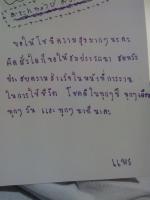 ขอให้ โบ มีความสุขมากๆ นะคะ
คิดสิ่งใดก็ขอให้สมปรารถนา สมหวัง
ประสบความสำเร็จในหน้าที่การงาน
ในการใช้ชีวิต โชคดีในทุกๆปี ทุกๆเดือน
ทุกๆวัน และ ทุกๆนาทีนะคะ
แพร